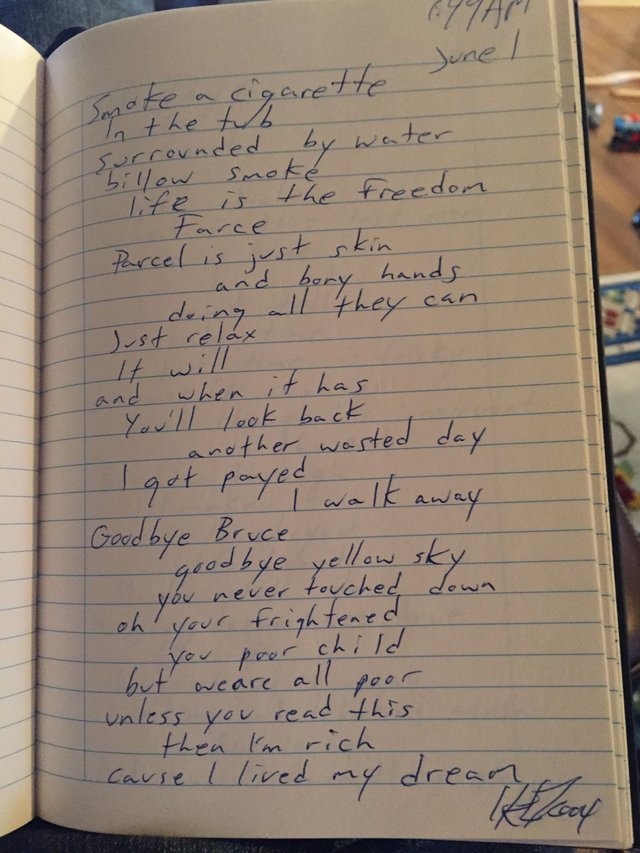 :44AM
June 1
Smoke a cigarette
In the tub
surrounded by water
billow smoke
life is the freedom
Farce
Parcel is just skin
and bony hands
doing all they can
Just relax
It will
and when it has
You'll look back
another wasted day
I got payed
I walk away
Goodbye Bruce
goodbye yellow sky
you never touched down
oh your frightened
you poor child
but weare all poor
unless you read this
then I'm rich
cause I lived my dream